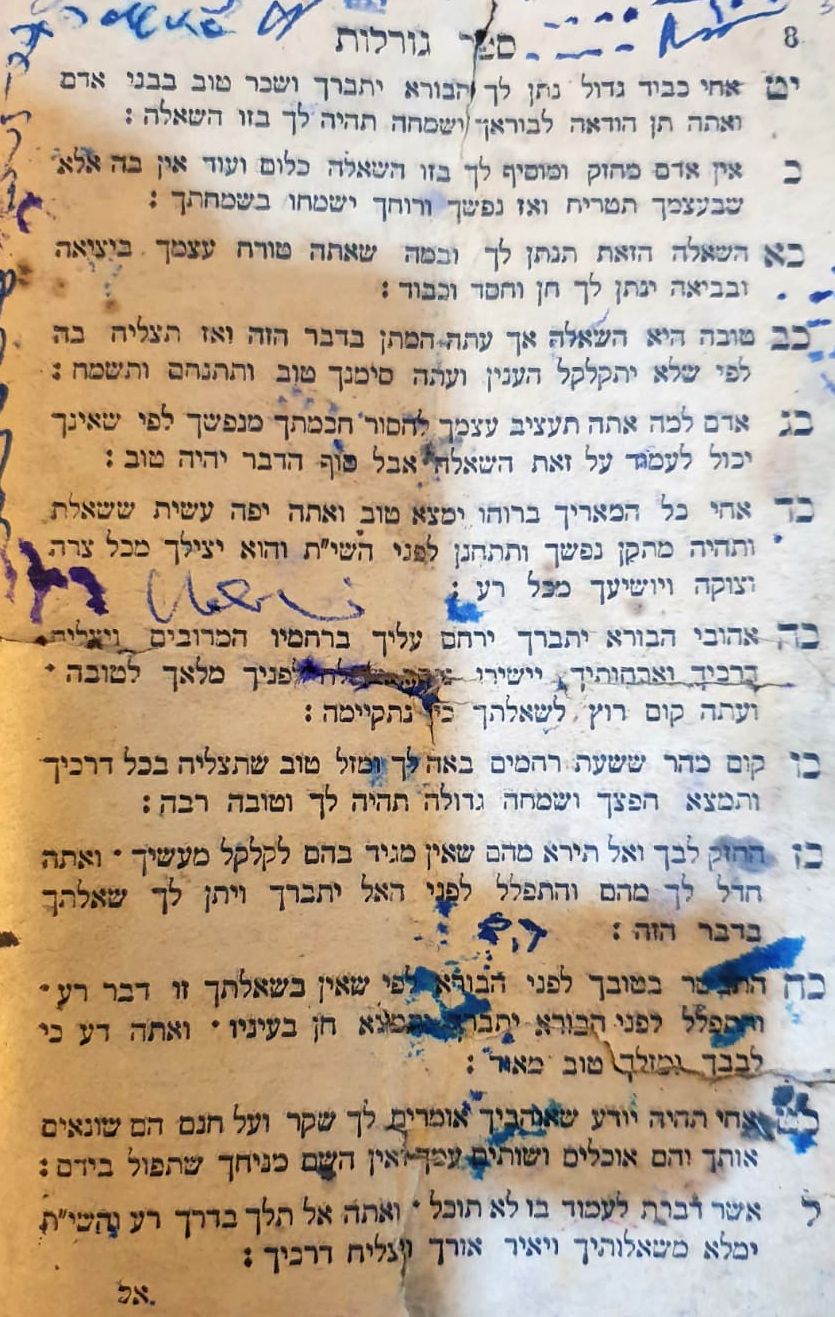 8
ספר גורלות
יט אחי כבוד גדול נתן לך הבורא יתברך ושכר טוב בבני אדם
ואתה תן הודאה לבוראך ישמחה תהיה לך בזו השאלה :
כ אין אדם מחזק ומוסיף לך בזו השאלה כלום ועוד אין בה אלא
שבעצמך תטריח ואז נפשך ורוחך ישמחו בשמחתך :
כא השאלה הזאת תנתן לך ובמה שאתה טורח עצמך ביציאה
ובביאה ינתן לך חן וחסד וכבוד :
כב טובה היא השאלה אך עתה המתן בדבר הזה ואז תצליח בה
לפי שלא יתקלקל הענין ועתה סימנך טוב ותתנחם ותשמח :
כג אדם למה אתה תעציב עצמך להסור חכמתך מנפשך לפי שאינך
יכול לעמוד על זאת השאלה אבל סוף הדבר יהיה טוב :
כד אחי כל המאריך ברוחו ימצא טוב ואתה יפה עשית ששאלת
ותהיה מתקן נפשך ותתחנן לפני השי״ת והוא יצילך מכל צרה
וצוקה ויושיעך מכל רע :
כה אהובי הבורא יתברך ירחם עליך ברחמיו המרובים ויצליח
דרכיך ואבחותיך יישירו לפניך מלאך לטובה ·
ועתה קום רוץ לשאלתך כי נתקיימה :
כו קום מהר ששעת רחמים באה לך ומזל טוב שתצליח בכל דרכיך
ותמצא חפצך ושמחה גדולה תהיה לך וטובה רבה :
כז החזק לבך ואל תירא מהם שאין מגיד בהם לקלקל מעשיך · ואתה
חדל לך מהם והתפלל לפני האל יתברך ויתן לך שאלתך
בדבר הזה :
כח בטובך לפני הבורא לפי שאין בשאלתך זו דבר רע ·
והתפלל לפני הבורא יתברך ותמצא חן בעיניו · ואתה דע כי
לבבך ומזלך טוב מאוד :
כט אחי תהיה יודע שאוהביך אומרים לך שקר ועל חנם הם שונאים
אותך והם אוכלים ושותים עמך ואין השם מניחך שתפול בידם :
ל אשר דברת לעמוד בו לא תוכל · ואתה אל תלך בדרך רע והשי״ת
ימלא משאלותיך ויאיר אורך ויצליח דרכיך :
אל.